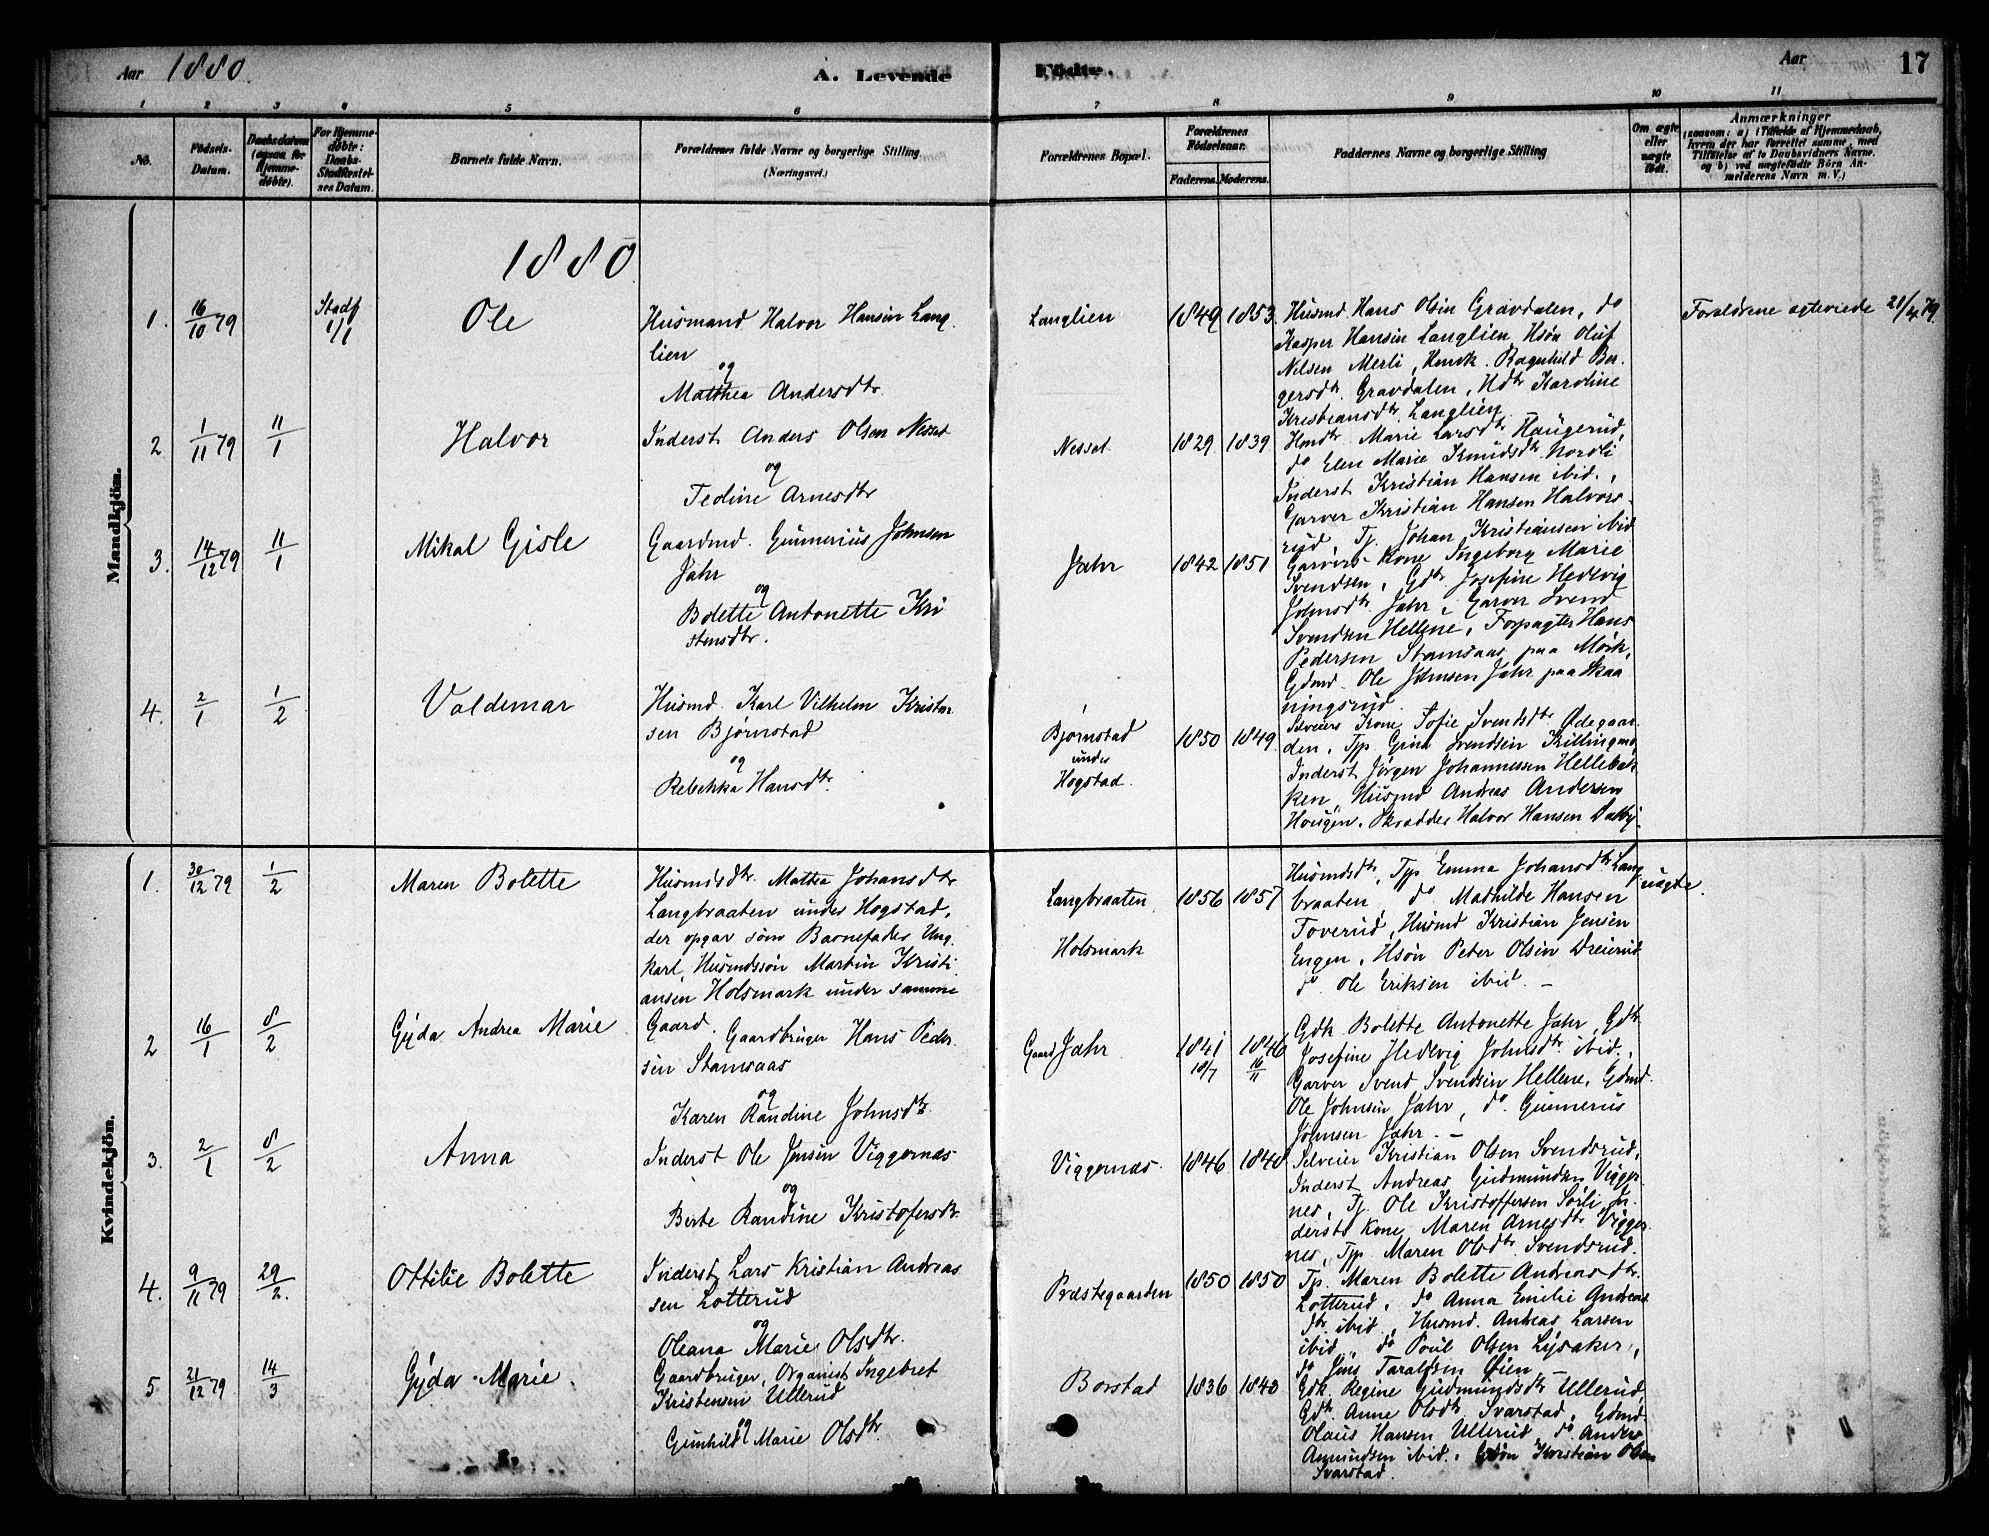 Aar 1880.
A. Levende
Födte.
Aar
17
1
2
3
4
5
6
7
8
9
10
11
No.
Födsels-
Datum.
Daabsdatum
(ogsaa for
Hjemme-
döbte).
For Hjemme-
döbte:
Daabs-
Stadfæstel-
ses Datum.
Barnets fulde Navn.
Forældrenes fulde Navne og borgerlige Stilling
(Næringsvei.)
Forældrenes Bopæl.
Forældrenes
Födselsaar.
Faderens.
Moderens.
Faddernes Navne og borgerlige Stilling
Om ægte
eller
uægte
födt.
Anmærkninger
(saasom: a) i Tilfælde af Hjemmedaab,
hvem der har forrettet samme, med
Tilföielse af to Daabsvidners Navne,
og b) ved uægtefödte Börn An-
melderens Navn m. V.)
Mandkjön.
1880
1.
16/10 79
Stadf
1/1
Ole
Husmand Halvor Hansen Lang
lien
og
Mathea Andersdtr.
Langlien
1849
1853.
Husmd. Hans Olsen Gravdalen, do
Kasper Hansen Langlien, Hsøn Oluf
Nilsen Merli, Hmdk. Ragnhild Ber-
gersdtr Gravdalen, Hdtr Karoline
Kristiansdtr Langlien.
Forældrene ægteviede 21/4 79.
2
1/11 79
11/1
Halvor
Inderst Anders Olsen Nesset
og
Tedine Arnesdtr
Nesset
1829
1839
Hmdtr Marie Larsdtr Haugerud,
do Elen Marie Knudsdtr Nordli
Inderst Kristian Hansen ibid.,
Garver Kristian Hansen Halvors-
rud Tj. Johan Kristiansen ibid
3.
14/12 79
11/1
Mikal Gisle
Gaardmd. Gunnerius Johnsen
Jahr
og
Bolette Antonette Kri
stensdtr.
Jahr
1842
1851
Garvers Kone Ingeborg Marie
Svendsen, Gdtr Josefine Hedevig
Johnsdtr Jahr, Garver Svend
Svendsen Hellene, Forpagter Hans
Pedersen Stamsaas paa Mörk,
Gdmd. Ole Johnsen Jahr paa Skaa
ningsrud.
4.
2/1
1/2
Valdemar
Husmd. Karl Vilhelm Kristian
sen Bjørnstad
og
Rebekka Hansdtr.
Bjørnstad
under
Hogstad.
1850
1849.
Selveiers Kone Sofie Svendsdtr Ødegaar
den, Tjp. Gina Svendsen Killingmo,
Inderst Jörgen Johannessen Hellebæk
ken, Husmd Andreas Andersen
Hougen, Skrædder Halvor Hansen Dalby.
Kvindekjön.
1.
30/12 79
1/2
Maren Bolette
Husmdsdtr. Mathea Johansdtr
Langbraaten under Hogstad,
der opgav som Barnefader Ung
karl, Husmdssøn Martin Kristi
ansen Holsmark under samme
Gaard.
Langbraaten
Holsmark
1856
1857
Husmdsdtr, Tjp Emma Johansdtr Lang
braaten, do Mathilde Hansen
Toverud, Husmd Kristian Jensen
Engen, Hsøn Peter Olsen Dreierud
do Ole Eriksen ibid. –
uægte.
2
16/1
8/2
Gyda Andrea Marie
Gaardbruger Hans Peder
sen Stamsaas
og
Karen Randine Johnsdtr.
Gaard Jahr
1841
18/7
1846
16/11
Gdk Bolette Antonette Jahr, Gdtr
Josefine Hedevig Johnsdtr ibid.,
Garver Svend Svendsen Hellene, Gdmd.
Ole Johnsen Jahr, do Gunnerius
Johnsen Jahr. –
3.
2/1
8/2
Anna
Inderst Ole Jensen Viggernæs
og
Berte Randine Kristofersdtr.
Viggernæs
1846
1840
Selveier Kristian Olsen Svendsrud,
Inderst Andreas Gudmundsen Vigger
nes, Tj. Ole Kristoffersen Sörli, In
dersts Kone Maren Arnesdtr Vigger
nes, Tjp. Maren Olsdtr Svendsrud.
4.
9/11 79
29/2.
Ottilie Bolette
Inderst Lars Kristian Andreas
sen Lotterud
og
Oleana Marie Olsdtr.
Præstegaarden
1850
1850
Tp. Maren Bolette Andreasdtr.
Lotterud, do Anna Emilie Andreas
dtr ibid, Husmd. Andreas Larsen
ibid, do Poul Olsen Lysaker,
do Jens Taraldsen Øien –
5
21/12 79
14/3
Gyda Marie.
Gaardbruger, Organist Ingebret
Kristensen Ullerud
og
Gunhild Marie Olsdtr.
Borstad
1836
1843
Gdk. Regine Gudmundsdtr Ullerud,
Gdk. Anne Olsdtr Svarstad, Gdmd
Olaus Hansen Ullerud, do Anders
Amundsen ibid., Gdsøn Kristian Olsen
Svarstad.